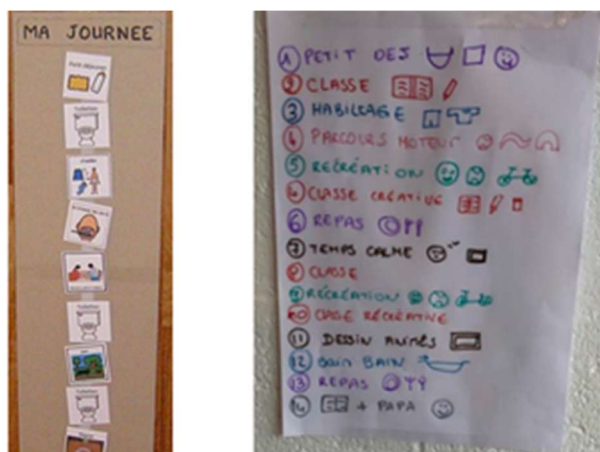 MA JOURNEE
Petit déjeuner
toilettes
toilettes
toilettes
1 PETIT DEJ
2 CLASSE
3 HABILLAGE
4 PARCOURS MOTEUR
5 RECRÉATION
6 CLASSE CRÉATIVE
6 REPAS
7 TEMPS CALME
8 CLASSE
9 RÉCRÉATION
10 CLASSE RÉCRÉATIVE
11 DESSIN ANIMÉS
12 BAIN BAIN
13 REPAS
14 + PAPA